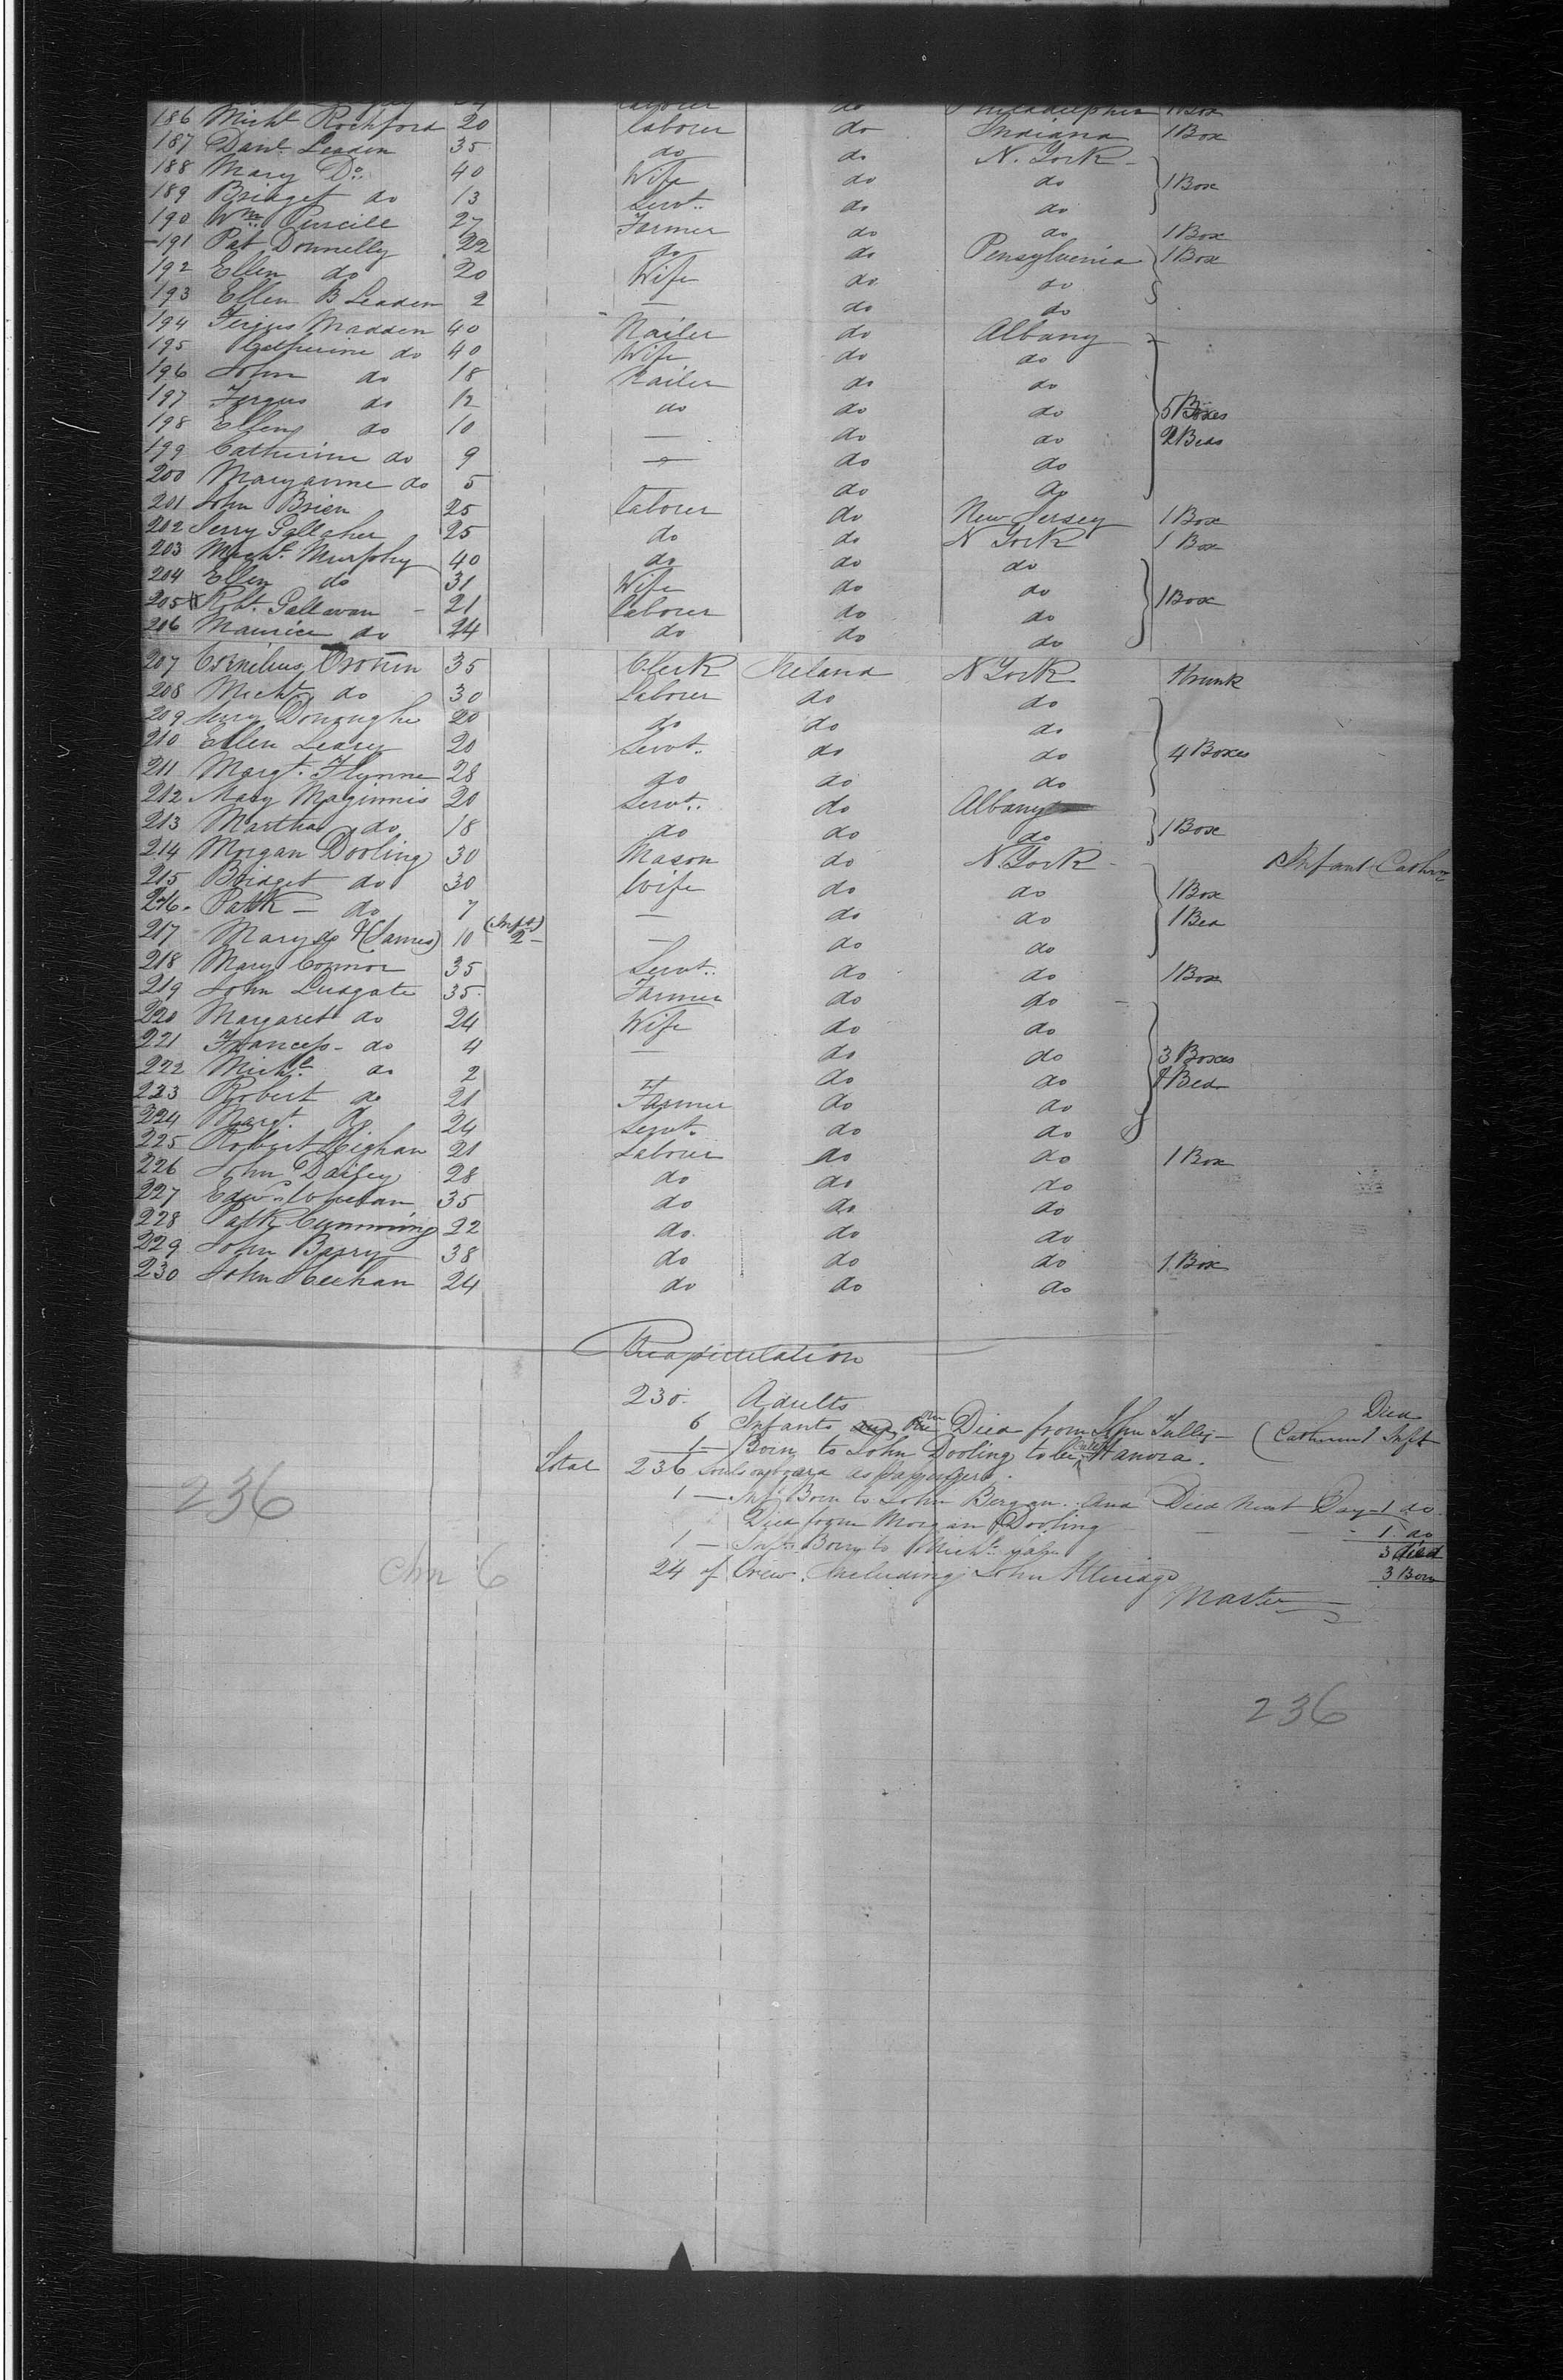 laborer do Philadelphia 1 Box
186 Michl Rochford 20 laborer do Indiana 1 Box
187 Danl Leaden 35 do do N. York
188 Mary Do 40 Wife do do 1 Box
189 Bridget do 13 Servt do do
190 Wm Purcill 27 Farmer do do 1 Box
191 Pat Donnelly 22 do do Pensylvinia 1 Box
192 Ellen do 20 Wife do do
193 Ellen B Leaden 2 — do do
194 Fergus Madden 40 Nailer do Albany
195 Catherine do 40 Wife do do
196 John do 18 Nailer do do
197 Fergus do 12 do do do 5 Boxes
198 Ellen do 10 — do do 2 Beds
199 Catherine do 9 — do do
200 Maryanne do 5 do do
201 John Brien 25 laborer do New Jersey 1 Box
202 Jerry Gallaher 25 do do N York 1 Box
203 Michl Murphy 40 do do do
204 Ellen do 31 Wife do do 1 Box
205 Robt Gallavan 21 laborer do do
206 Maurice do 24 do do do
207 Cornilius Cronin 35 Clerk Ireland N York 1 trunk
208 Michl do 30 Laborer do do
209 Jerry Donoughe 20 do do do
210 Ellen Leary 20 Servt do do 4 Boxes
211 Margt Flynne 28 do do do
212 Mary Maginnis 20 Servt do Albany
213 Martha do 18 do do do 1 Box
214 Morgan Dooling 30 Mason do N. York Infant
215 Bridget do 30 Wife do do 1 Box
216 Patk — do 7 — do do 1 Bed
217 Mary do & (James) 10 (Inft) 2 — do do
218 Mary Connor 35 Servt do do 1 Box
219 John Ludgate 35 Farmer do do
220 Margaret do 24 Wife do do
221 Francess do 4 — do do 3 Boxes
222 Michl do 2 do do 1 Bed
223 Robert do 21 Farmer do do
224 Margt do 24 Servt do do
225 Robert Highan 21 Laborer do do 1 Box
226 John Dailey 28 do do do
227 Edwd 35 do do do
228 Patk Cumming 22 do do do
229 John Barry 38 do do do 1 Box
230 John Meehan 24 do do do
Recapitulation
230 Adults Died
6 Infants one Died from John Tully — (Catherine) 1 Inft
1 Born to John Dooling to be called Hanora.
Total 236 Souls onboard as Passengers.
1 — Inft Born to John Bergan. And Died Next Day — 1 do
Died from Morgan Dooling — — 1 do
1 — Inft Born to Michl 3 died
24 of Crew. Including John 3 Born
Master
236
Chn 6
236